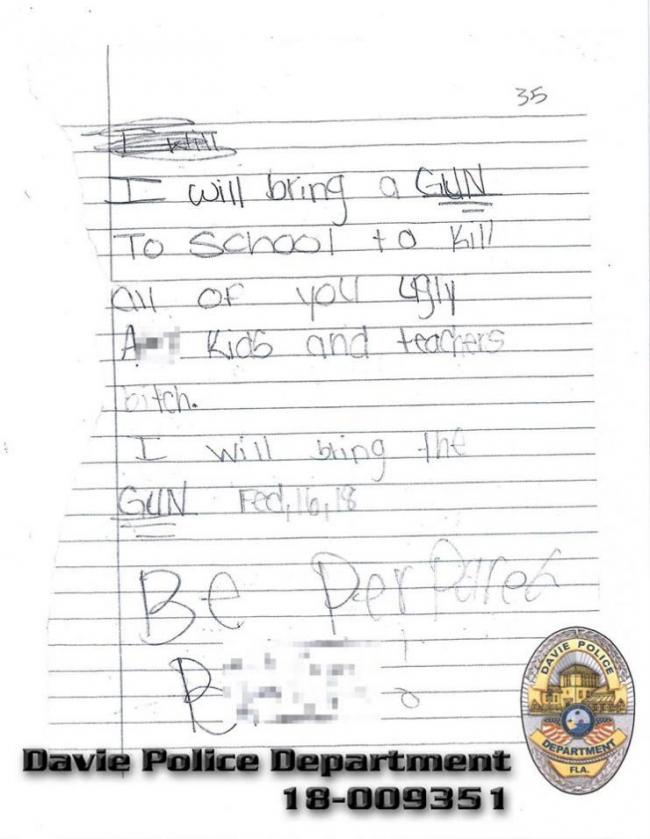 35
I will
I will bring a GUN
To School to kill
all of you ugly
A
kids and teachers
bitch.
I will bring the
GUN Fed,16,18
Be PerPared
R
DAVIE POLICE
DEPARTMENT
FLA.
Davie Police Department
18-009351